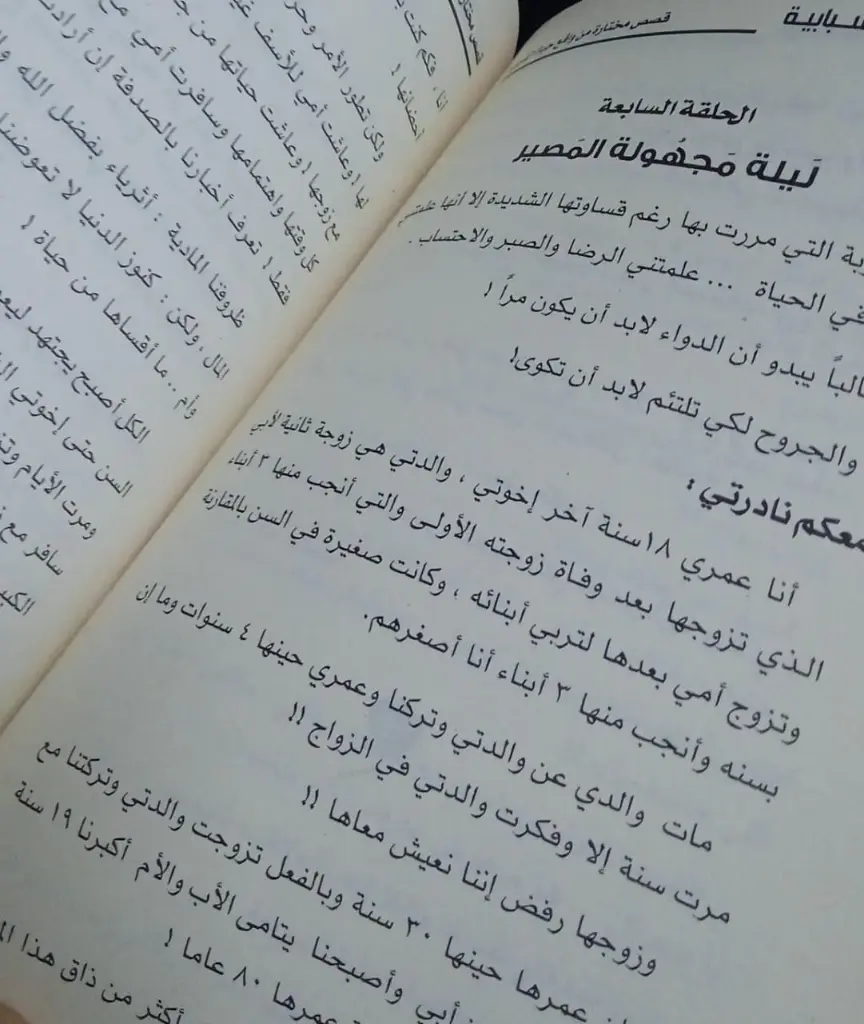 قصص مختارة من واقع
الحلقة السابعة
لَيلة مَجهُولة المَصير
التي مررت بها رغم قساوتها الشديدة إلا انها علمتني
في الحياة ... علمتني الرضا والصبر والاحتساب .
يبدو أن الدواء لابد أن يكون مراً !
والجروح لكي تلتئم لابد أن تكوى!
معكم نادرتي :
أنا عمري ١٨ سنة آخر إخوتي ، والدتي هي زوجة ثانية لأبي
الذي تزوجها بعد وفاة زوجته الأولى والتي أنجب منها ٣ أبناء
وتزوج أمي بعدها لتربي أبنائه ، وكانت صغيرة في السن بالمقارنة
بسنه وأنجب منها ٣ أبناء أنا أصغرهم.
مات والدي عن والدتي وتركنا وعمري حينها ٤ سنوات وما إن
مرت سنة إلا وفكرت والدتي في الزواج !!
وزوجها رفض إننا نعيش معاها !!
عمرها حينها ٣٠ سنة وبالفعل تزوجت والدتي وتركتنا مع
أبي وأصبحنا يتامى الأب والأم أكبرنا ١٩ سنة
عمرها ٨٠ عاما !
أكثر من ذاق هذا
أنا ، فكم كنت
أحضانها !
ولكن تطور الأمر
لها ! وعاشت أمي للأسف
مع زوجها ! وعاشت حياتها من
كل وقتها واهتمامها وسافرت أمي مع
فقط ! تعرف أخبارنا بالصدفة إن أرادت
ظروفنا المادية : أثرياء بفضل الله
المال ، ولكن : كنوز الدنيا لا تعوضنا
وأم .. ما أقساها من حياة !
الكل أصبح يجتهد
السن حتى إخوتي
ومرت الأيام
سافر مع